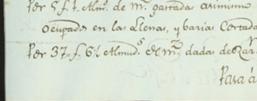 Per 5 f. 1 Alm. de m.ª gastada asimismo
Ocupados en la Llenas, y varias Cortada
Per 37 f. 6 Almud.s de m.ª dadas de
Para á